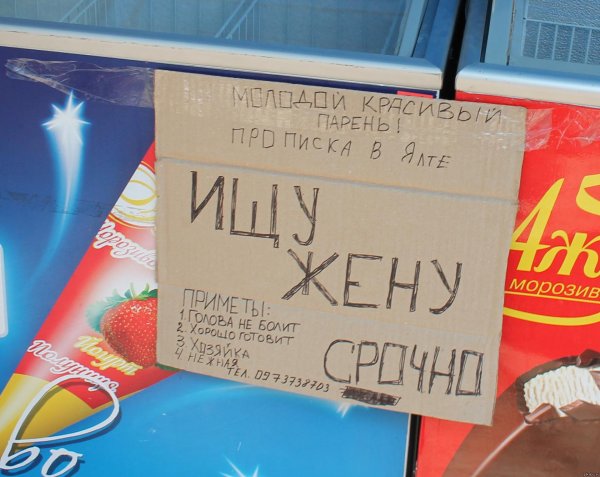 МОЛОДОЙ КРАСИВЫЙ
ПАРЕНЬ!
ПРОПИСКА В ЯЛТЕ
ИЩУ
ЖЕНУ
ПРИМЕТЫ:
1. ГОЛОВА НЕ БОЛИТ
2. ХОРОШО ГОТОВИТ
3. ХОЗЯЙКА
4. НЕЖНАЯ
СРОЧНО
ТЕЛ. 0973738703
Морозиво
Полуниця
Йогурт
Аж
МОРОЗИВ